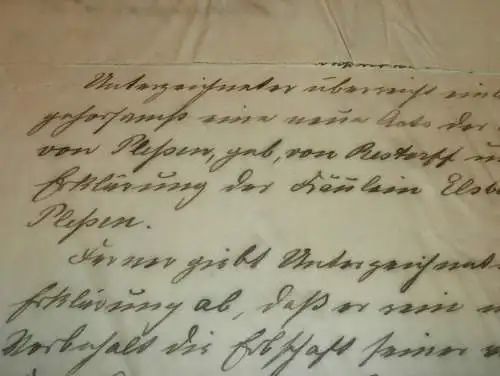 Unterzeichneter überreicht
gehorsamst eine neue Acte der
von Pleßen, geb. von Restorff u
Erklärung der Fräulein Elsb
Pleßen.
Ferner giebt Unterzeichnet
Erklärung ab, daß er rein u
Vorbehalt die Erbschaft seiner